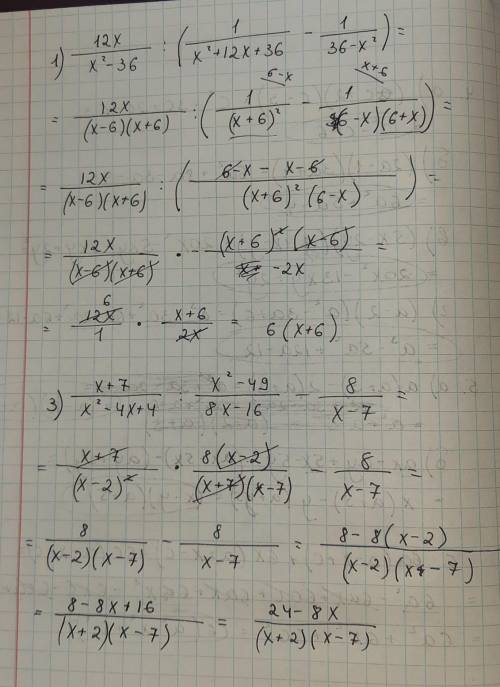 1) 12x/(x²-36) : (1/(x²+12x+36) - 1/(36-x²)) =
6-x x+6
= 12x/((x-6)(x+6)) : (1/(x+6)² - 1/((6-x)(6+x))) =
= 12x/((x-6)(x+6)) : ((6-x - x-6)/((x+6)²(6-x))) =
= 12x/((x-6)(x+6)) · - ((x+6)²(x-6))/(-2x) =
6
= 12x/1 · (x+6)/2x = 6(x+6)
3) (x+7)/(x²-4x+4) : (x²-49)/(8x-16) - 8/(x-7) =
= (x+7)/(x-2)² · 8(x-2)/((x+7)(x-7)) - 8/(x-7) =
= 8/((x-2)(x-7)) - 8/(x-7) = (8-8(x-2))/((x-2)(x-7))
= (8-8x+16)/((x+2)(x-7)) = (24-8x)/((x+2)(x-7))